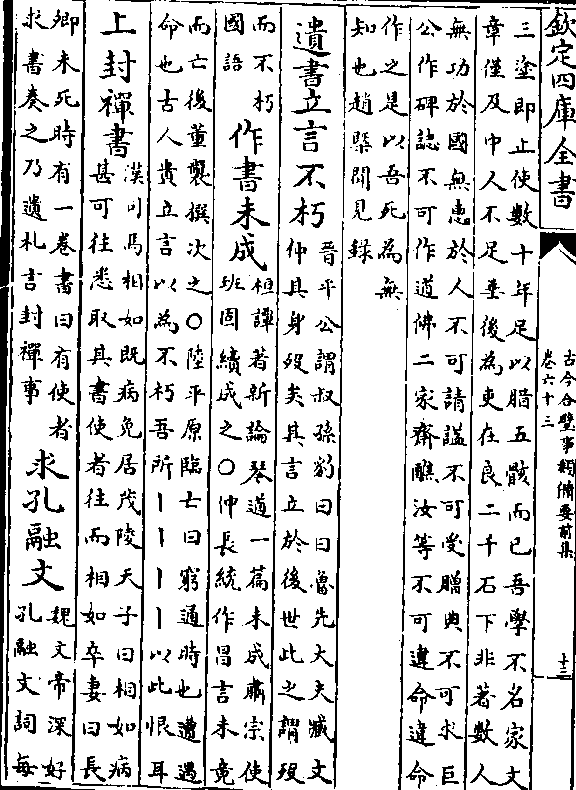 欽定四庫全書
古今合璧事類備要前集
卷六十三
十三
三塗即止使數十年足以腊五骸而已吾學不名家文
章僅及中人不足垂後為吏在良二千石下非著數人
無功於國無惠於人不可請謚不可受贈典不可求巨
公作碑誌不可作道佛二家齋醮汝等不可違命違命
作之是以吾死為無
知也趙槩聞見錄
遺書立言不朽
晉平公謂叔孫豹曰曰魯先大夫臧文
仲其身殁矣其言立於後世此之謂殁
而不朽
國語
作書未成
桓譚著新論琴道一篇未成肅宗使
班固續成之○仲長統作昌言未竟
而亡後董襲撰次之○陸平原臨亡曰窮通時也遭遇
命也古人貴立言以為不朽吾所丨丨丨丨以此恨耳
上封禪書
漢司馬相如既病免居茂陵天子曰相如病
甚可往悉取其書使者往而相如卒妻曰長
卿未死時有一卷書曰有使者
求書奏之乃遺札言封禪事
求孔融文
魏文帝深好
孔融文詞每